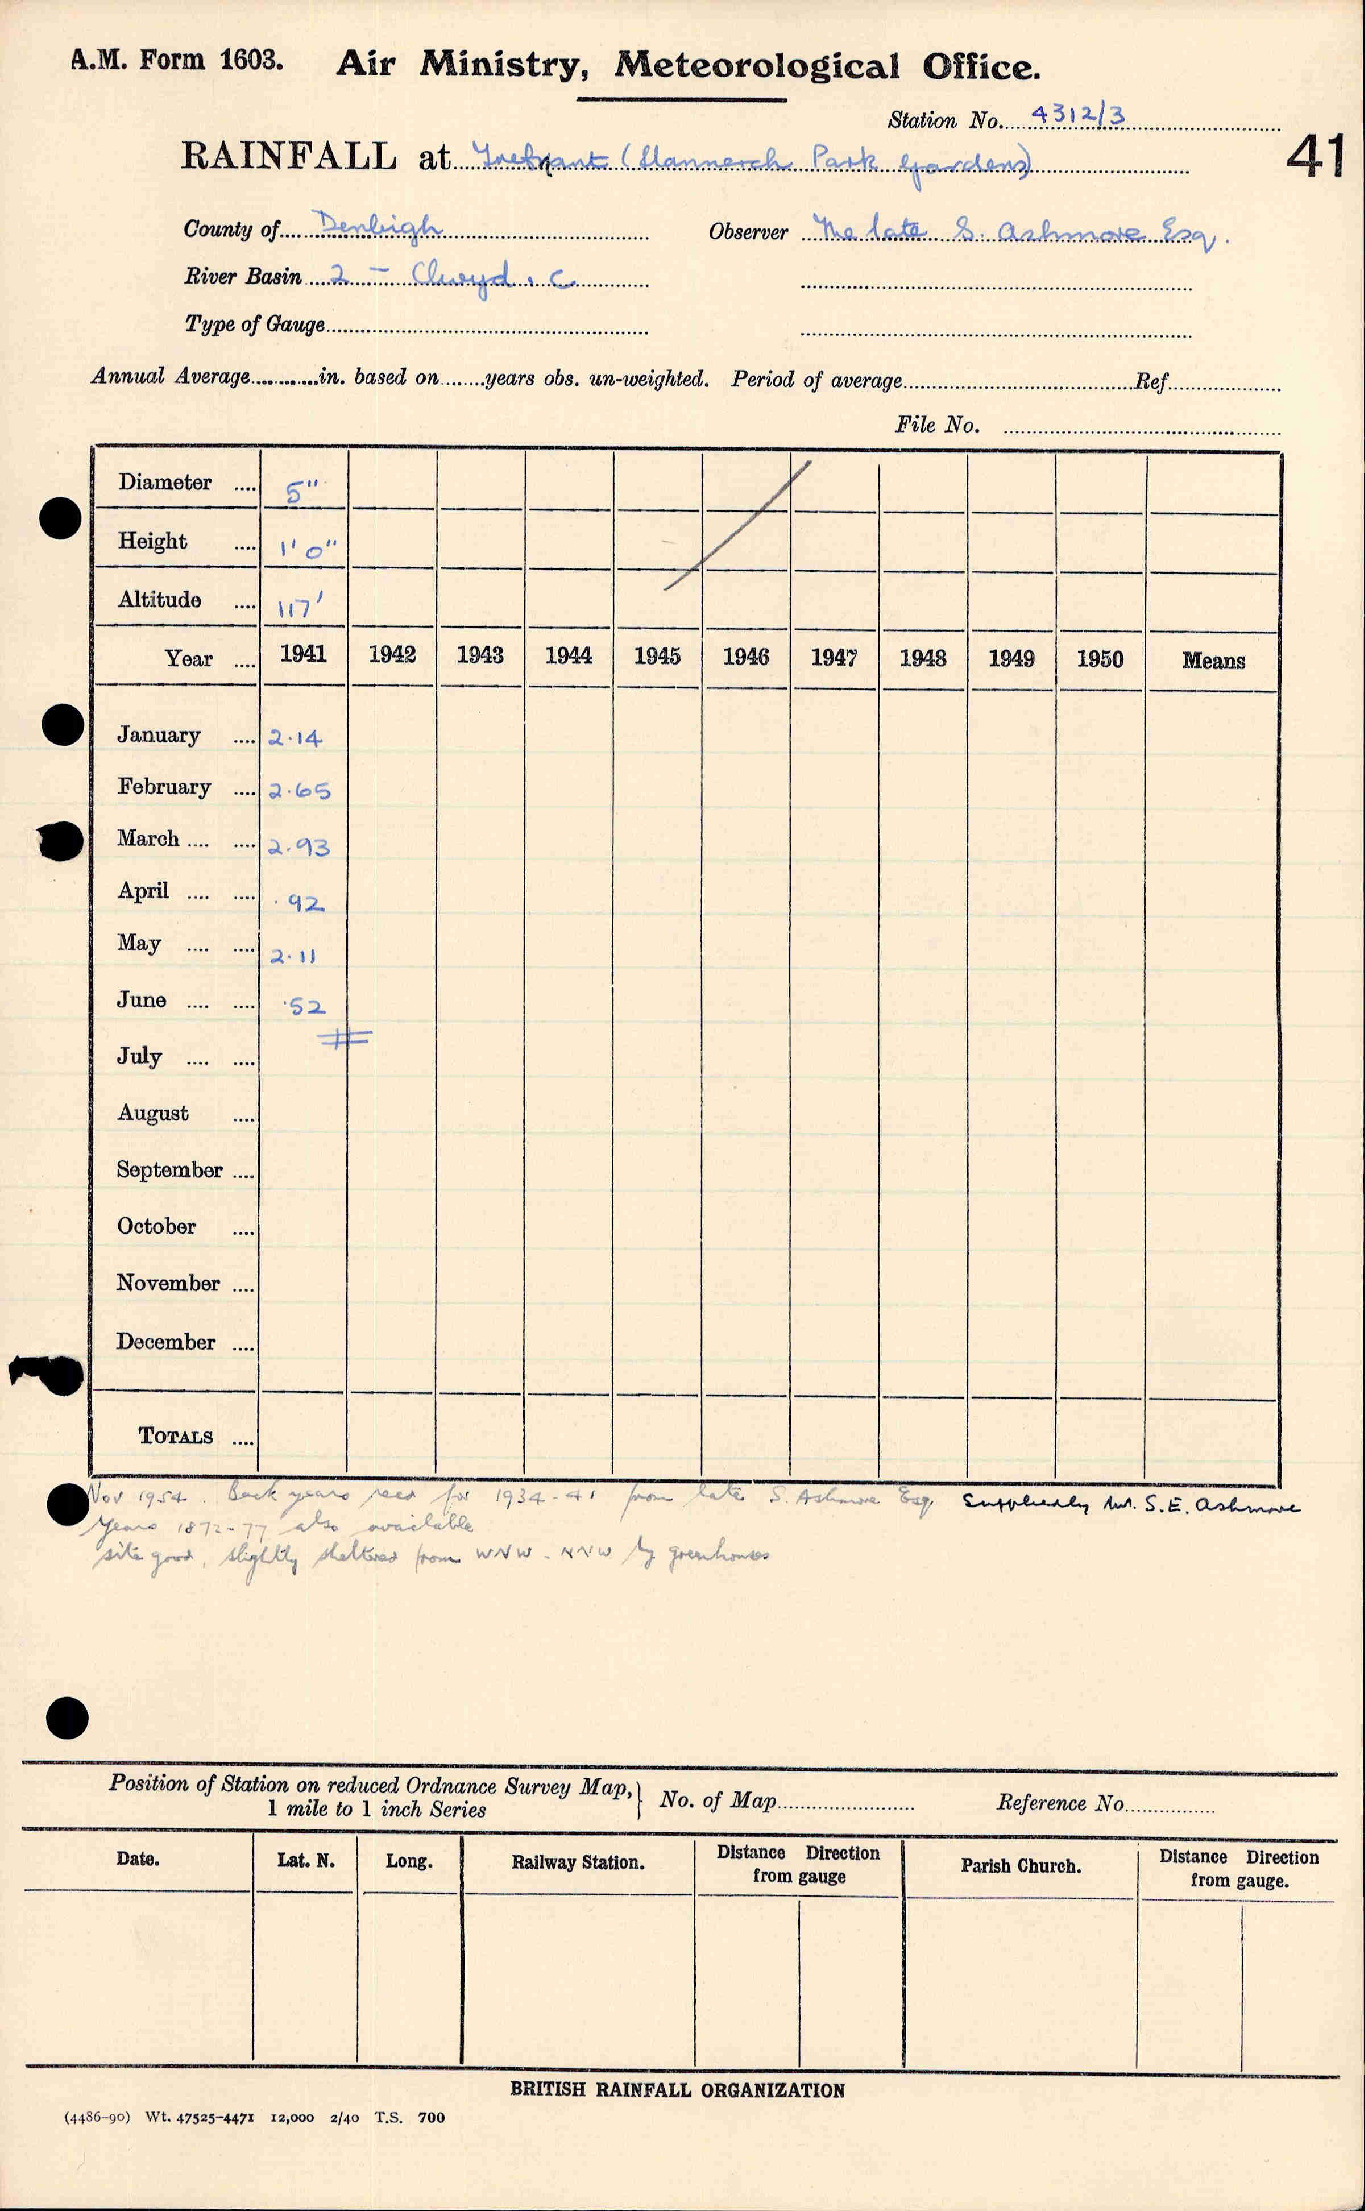 A.M. Form 1603. Air Ministry, Meteorological Office.
Station No. 4312/3
RAINFALL at Trefnant (Llannerch Park Gardens) 41
County of Denbigh Observer The late S. Ashmore Esq.
River Basin 2 – Clwyd . C
Type of Gauge
Annual Average in. based on years obs. un-weighted. Period of average Ref
File No.
Diameter 5"
Height 1' 0"
Altitude 117'
Year 1941 1942 1943 1944 1945 1946 1947 1948 1949 1950 Means
January 2.14
February 2.65
March 2.93
April .92
May 2.11
June .52
July
August
September
October
November
December
TOTALS
Nov 1954. Back years recd for 1934-41 from late S. Ashmore Esq. Supplied by Mr. S.E. Ashmore
Years 1872-77 also available
site good, slightly sheltered from WNW - NNW by greenhouses
Position of Station on reduced Ordnance Survey Map, } No. of Map Reference No.
1 mile to 1 inch Series
Date. Lat. N. Long. Railway Station. Distance Direction from gauge Parish Church. Distance Direction from gauge.
BRITISH RAINFALL ORGANIZATION
(4486-90) Wt. 47525-4471 12,000 2/40 T.S. 700